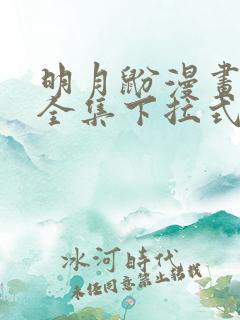 明月鼢漫畫
全集下拉式
冰河時代
未經同意禁止轉載